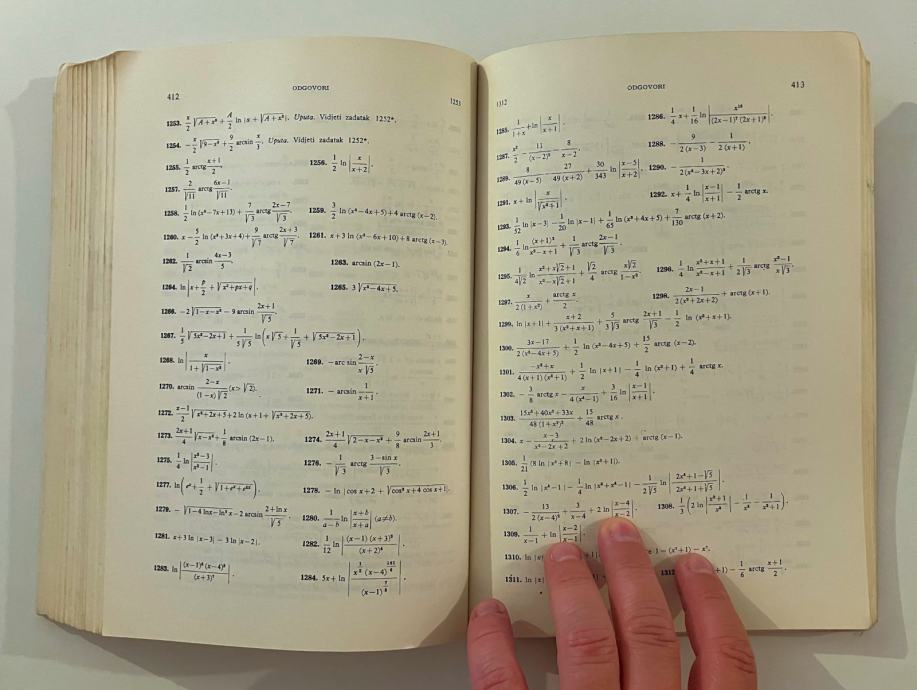 412
ODGOVORI
1253
1253. x/2 √(A+x²) + A/2 ln |x+√(A+x²)|. Uputa. Vidjeti zadatak 1252*.
1254. −x/2 √(9−x²) + 9/2 arcsin x/3. Uputa. Vidjeti zadatak 1252*.
1255. 1/2 arctg (x+1)/2.
1256. 1/2 ln |x/(x+2)|.
1257. 2/√11 arctg (6x−1)/√11.
1258. 1/2 ln (x²−7x+13) + 7/√3 arctg (2x−7)/√3.
1259. 3/2 ln (x²−4x+5)+4 arctg (x−2).
1260. x−5/2 ln (x²+3x+4)+9/√7 arctg (2x+3)/√7.
1261. x+3 ln (x²−6x+10)+8 arctg (x−3).
1262. 1/√2 arcsin (4x−3)/5.
1263. arcsin (2x−1).
1264. ln |x+p/2+√(x²+px+q)|.
1265. 3√(x²−4x+5).
1266. −2√(1−x−x²)−9 arcsin (2x+1)/√5.
1267. 1/5 √(5x²−2x+1)+1/(5√5) ln (x√5+1/√5+√(5x²−2x+1)).
1268. ln |x/(1+√(1−x²))|.
1269. −arc sin (2−x)/(x√5).
1270. arcsin (2−x)/((1−x)√2) (x>√2).
1271. −arcsin 1/(x+1).
1272. (x−1)/2 √(x²+2x+5)+2 ln (x+1+√(x²+2x+5)).
1273. (2x+1)/4 √(x−x²)+1/8 arcsin (2x−1).
1274. (2x+1)/4 √(2−x−x²)+9/8 arcsin (2x+1)/3.
1275. 1/4 ln |(x²−3)/(x²−1)|.
1276. −1/√3 arctg (3−sin x)/√3.
1277. ln (eˣ+1/2+√(1+eˣ+e²ˣ)).
1278. −ln |cos x+2+√(cos² x+4 cos x+1)|.
1279. −√(1−4 ln x−ln² x)−2 arcsin (2+ln x)/√5.
1280. 1/(a−b) ln |(x+b)/(x+a)| (a≠b).
1281. x+3 ln |x−3|−3 ln |x−2|.
1282. 1/12 ln |(x−1)(x+3)³/(x+2)⁴|.
1283. ln |(x−1)⁴(x−4)⁵/(x+3)⁷|.
1284. 5x+ln
1312
ODGOVORI
413
1285. 1/(1+x)+ln |x/(x+1)|.
1286. 1/4 x+1/16 ln |x¹⁶/((2x−1)⁷(2x+1)⁹)|.
1287. x²/2−11/(x−2)²−8/(x−2).
1288. −9/(2(x−3))−1/(2(x+1)).
1289. 8/(49(x−5))−27/(49(x+2))+30/343 ln |(x−5)/(x+2)|.
1290. −1/(2(x²−3x+2)²).
1291. x+ln |x/√(x²+1)|.
1292. x+1/4 ln |(x−1)/(x+1)|−1/2 arctg x.
1293. 1/52 ln |x−3|−1/20 ln |x−1|+1/65 ln (x²+4x+5)+7/130 arctg (x+2).
1294. 1/6 ln (x+1)²/(x²−x+1)+1/√3 arctg (2x−1)/√3.
1295. 1/(4√2) ln (x²+x√2+1)/(x²−x√2+1)+√2/4 arctg x√2/(1−x²).
1296. 1/4 ln (x²+x+1)/(x²−x+1)+1/(2√3) arctg (x²−1)/(x√3).
1297. x/(2(1+x²))+(arctg x)/2.
1298. (2x−1)/(2(x²+2x+2))+arctg (x+1).
1299. ln |x+1|+(x+2)/(3(x²+x+1))+5/(3√3) arctg (2x+1)/√3−1/2 ln (x²+x+1).
1300. (3x−17)/(2(x²−4x+5))+1/2 ln (x²−4x+5)+15/2 arctg (x−2).
1301. (−x²+x)/(4(x+1)(x²+1))+1/2 ln |x+1|−1/4 ln (x²+1)+1/4 arctg x.
1302. −3/8 arctg x−x/(4(x⁴−1))+3/16 ln |(x−1)/(x+1)|.
1303. (15x⁵+40x³+33x)/(48(1+x²)³)+15/48 arctg x.
1304. x−(x−3)/(x²−2x+2)+2 ln (x²−2x+2)+arctg (x−1).
1305. 1/21 (8 ln |x³+8|−ln |x³+1|).
1306. 1/2 ln |x⁴−1|−1/4 ln |x⁸+x⁴−1|−1/(2√5) ln |(2x⁴+1−√5)/(2x⁴+1+√5)|.
1307. −13/(2(x−4)²)+3/(x−4)+2 ln |(x−4)/(x−2)|.
1308. 1/3 (2 ln |(x³+1)/x³|−1/x³−1/(x³+1)).
1309. 1/(x−1)+ln |(x−2)/(x−1)|.
1310. ln |x
1311. ln |x
1312
+1)−1/6 arctg (x+1)/2.